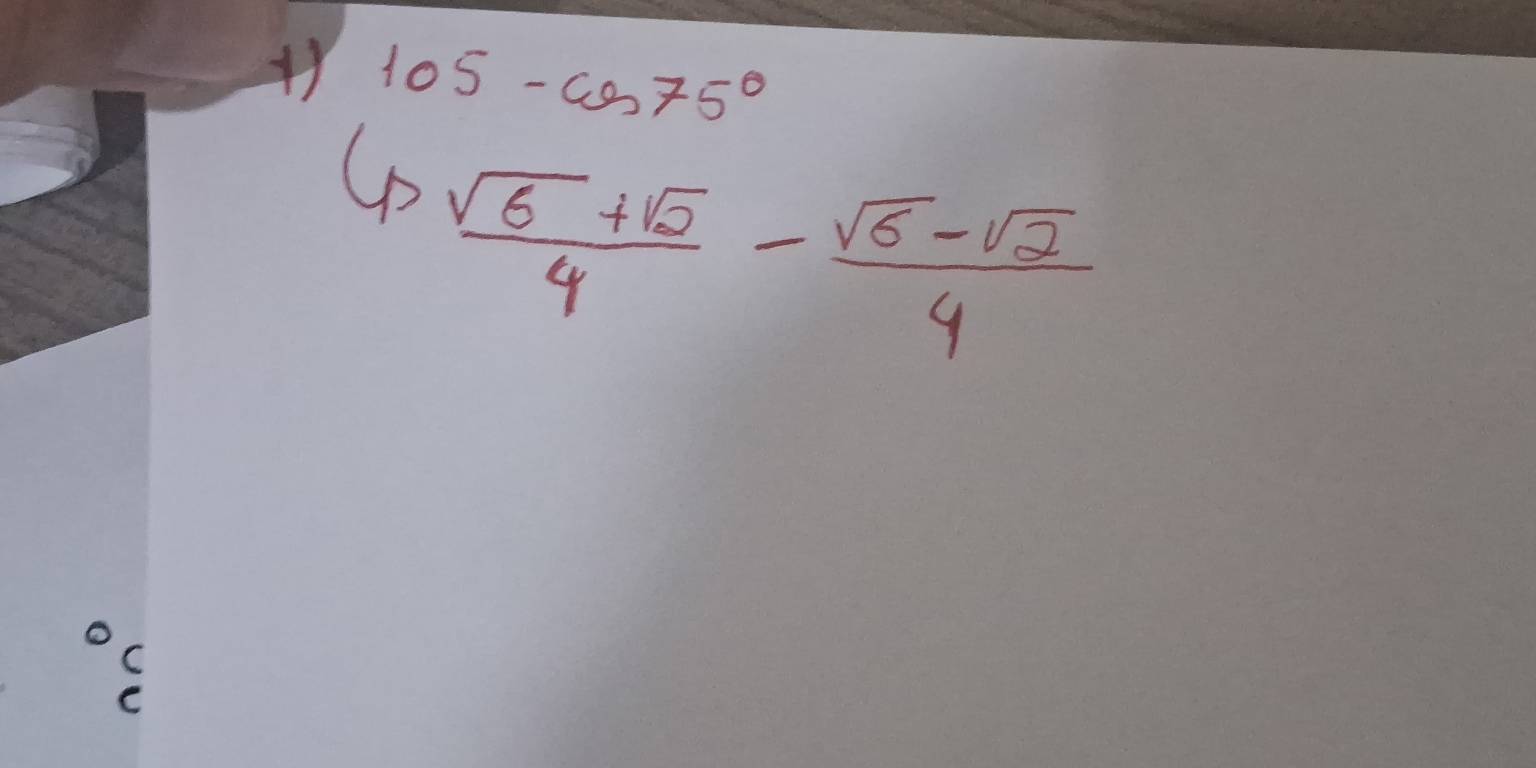 1) 105 - cos 75°
↳ √6 + √2 / 4 - √6 - √2 / 4
° C
C